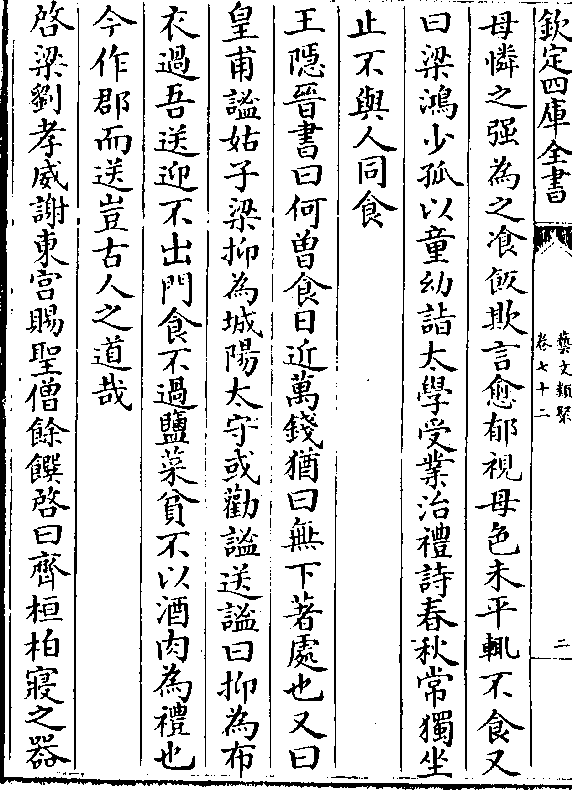 欽定四庫全書
藝文類聚
卷七十二
二
母憐之强為之飡飯欺言愈郁視母色未平輒不食又
曰梁鴻少孤以童幼詣太學受業治禮詩春秋常獨坐
止不與人同食
王隱晉書曰何曾食日近萬錢猶曰無下著處也又曰
皇甫謐姑子梁抑為城陽太守或勸謐送謐曰抑為布
衣過吾送迎不出門食不過鹽菜貧不以酒肉為禮也
今作郡而送豈古人之道哉
啓梁劉孝威謝東宫賜聖僧餘饌啓曰齊桓柏寢之器